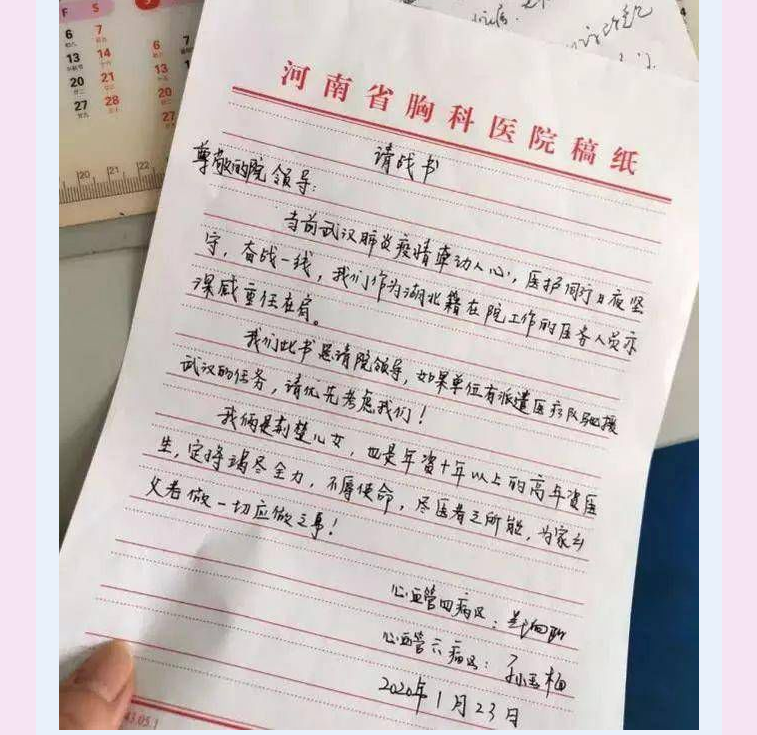 F S
6 7
初八
13 14
20 21
27 28
6 7
13
20
27
20 21 22
河南省胸科医院稿纸
请战书
尊敬的院领导：
当前武汉肺炎疫情牵动人心，医护同行日夜坚
守，奋战一线，我们作为湖北籍在院工作的医务人员亦
深感重任在肩。
我们此书恳请院领导，如果单位有派遣医疗队驰援
武汉的任务，请优先考虑我们！
我俩是荆楚儿女，也是年资十年以上的高年资医
生，定将竭尽全力，不辱使命，尽医者之所能，为家乡
父老做一切应做之事！
心血管四病区：
心血管六病区：孙玉梅
2020年1月23日
43.05.1